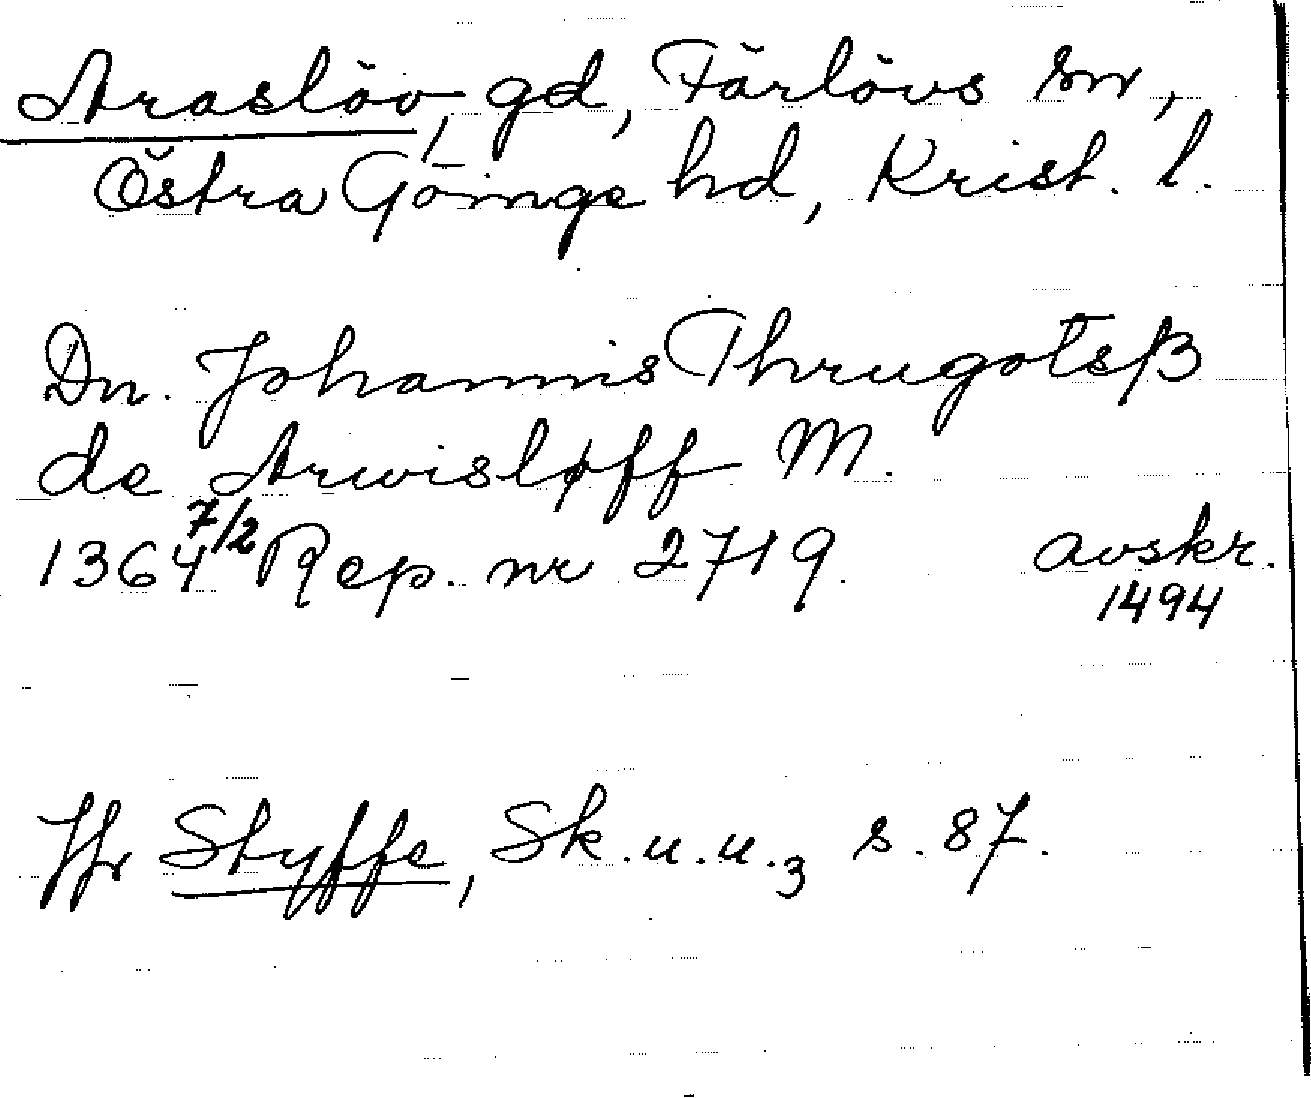 Araslöv, gd, Färlövs sn,
Östra Göinge hd, Krist. l.
Dn. Johannis Thrugotsß
de Arwisløff M.
1364 7/2 Rep. nr 2719. avskr.
1494
Jfr Styffe, Sk.u.u.3 s. 87.